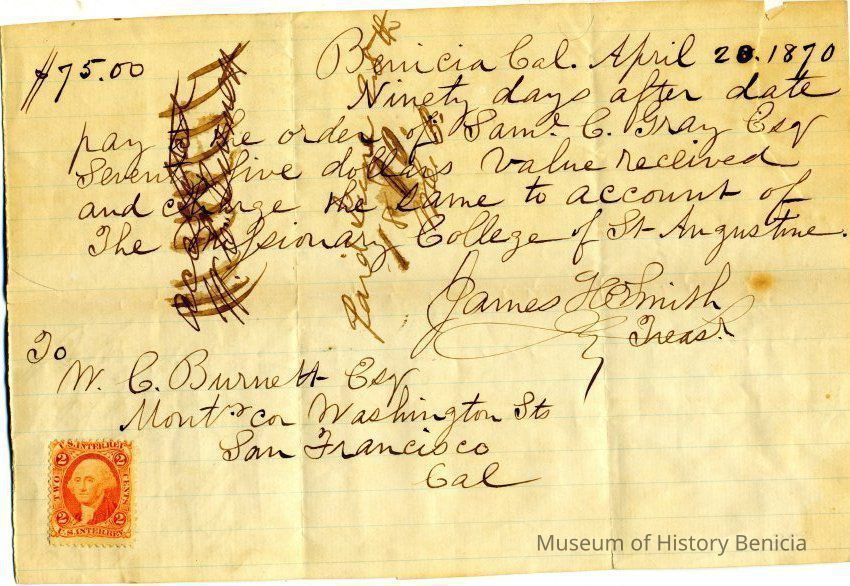 $75.00
Benicia Cal. April 20. 1870
Ninety days after date
pay to the order of Saml. C. Gray Esq
Seventy five dollars value received
and charge the same to account of
The Missionary College of St Augustine.
James H Smith
Treasr
To
W. C. Burnett Esq
Montr cor Washington Sts
San Francisco
Cal
U.S. INTER. REV.
2 2
TWO CENTS
2 2
U.S. INTER. REV.
Museum of History Benicia